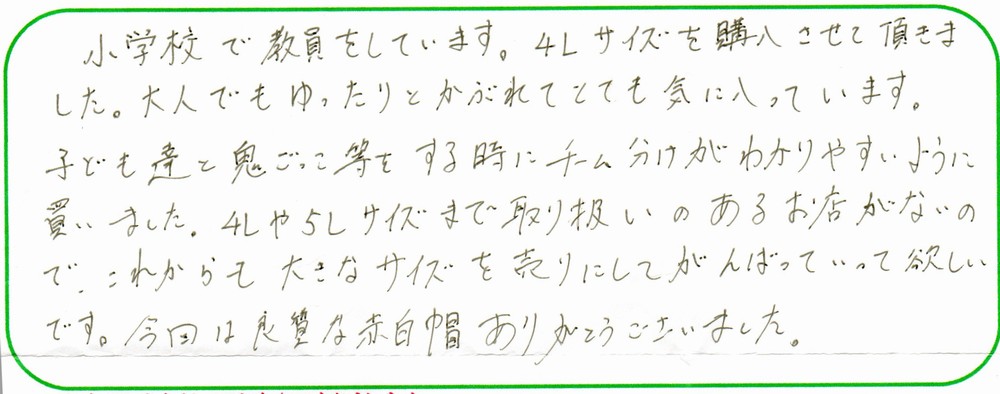 小学校で教員をしています。4Lサイズを購入させて頂きま
した。大人でもゆったりとかぶれてとても気に入っています。
子ども達と鬼ごっこ等をする時にチーム分けがわかりやすいように
買いました。4Lや5Lサイズまで取り扱いのあるお店がないの
で、これからも大きなサイズを売りにしてがんばっていって欲しい
です。今回は良質な赤白帽ありがとうございました。